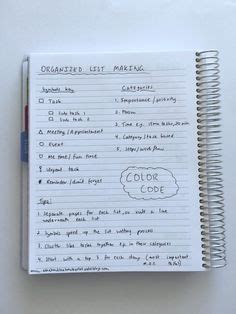 ORGANIZED LIST MAKING
Symbols key
Task
Sub task 1
Sub task 2
Meeting / Appointment
Event
Me time / fun time
! Urgent task
* Reminder / don't forget
Categories
1. Importance / priority
2. Person
3. Time e.g. 10min tasks, 20 min
4. Category / task based
5. Steps / work flow
COLOR
CODE
Tips:
1. Separate pages for each list, or rule a line
underneath each list
2. Symbols speed up the list writing process
3. Cluster like tasks together e.g. in their categories
4. Start with a top 3 for each day (most important
tasks)